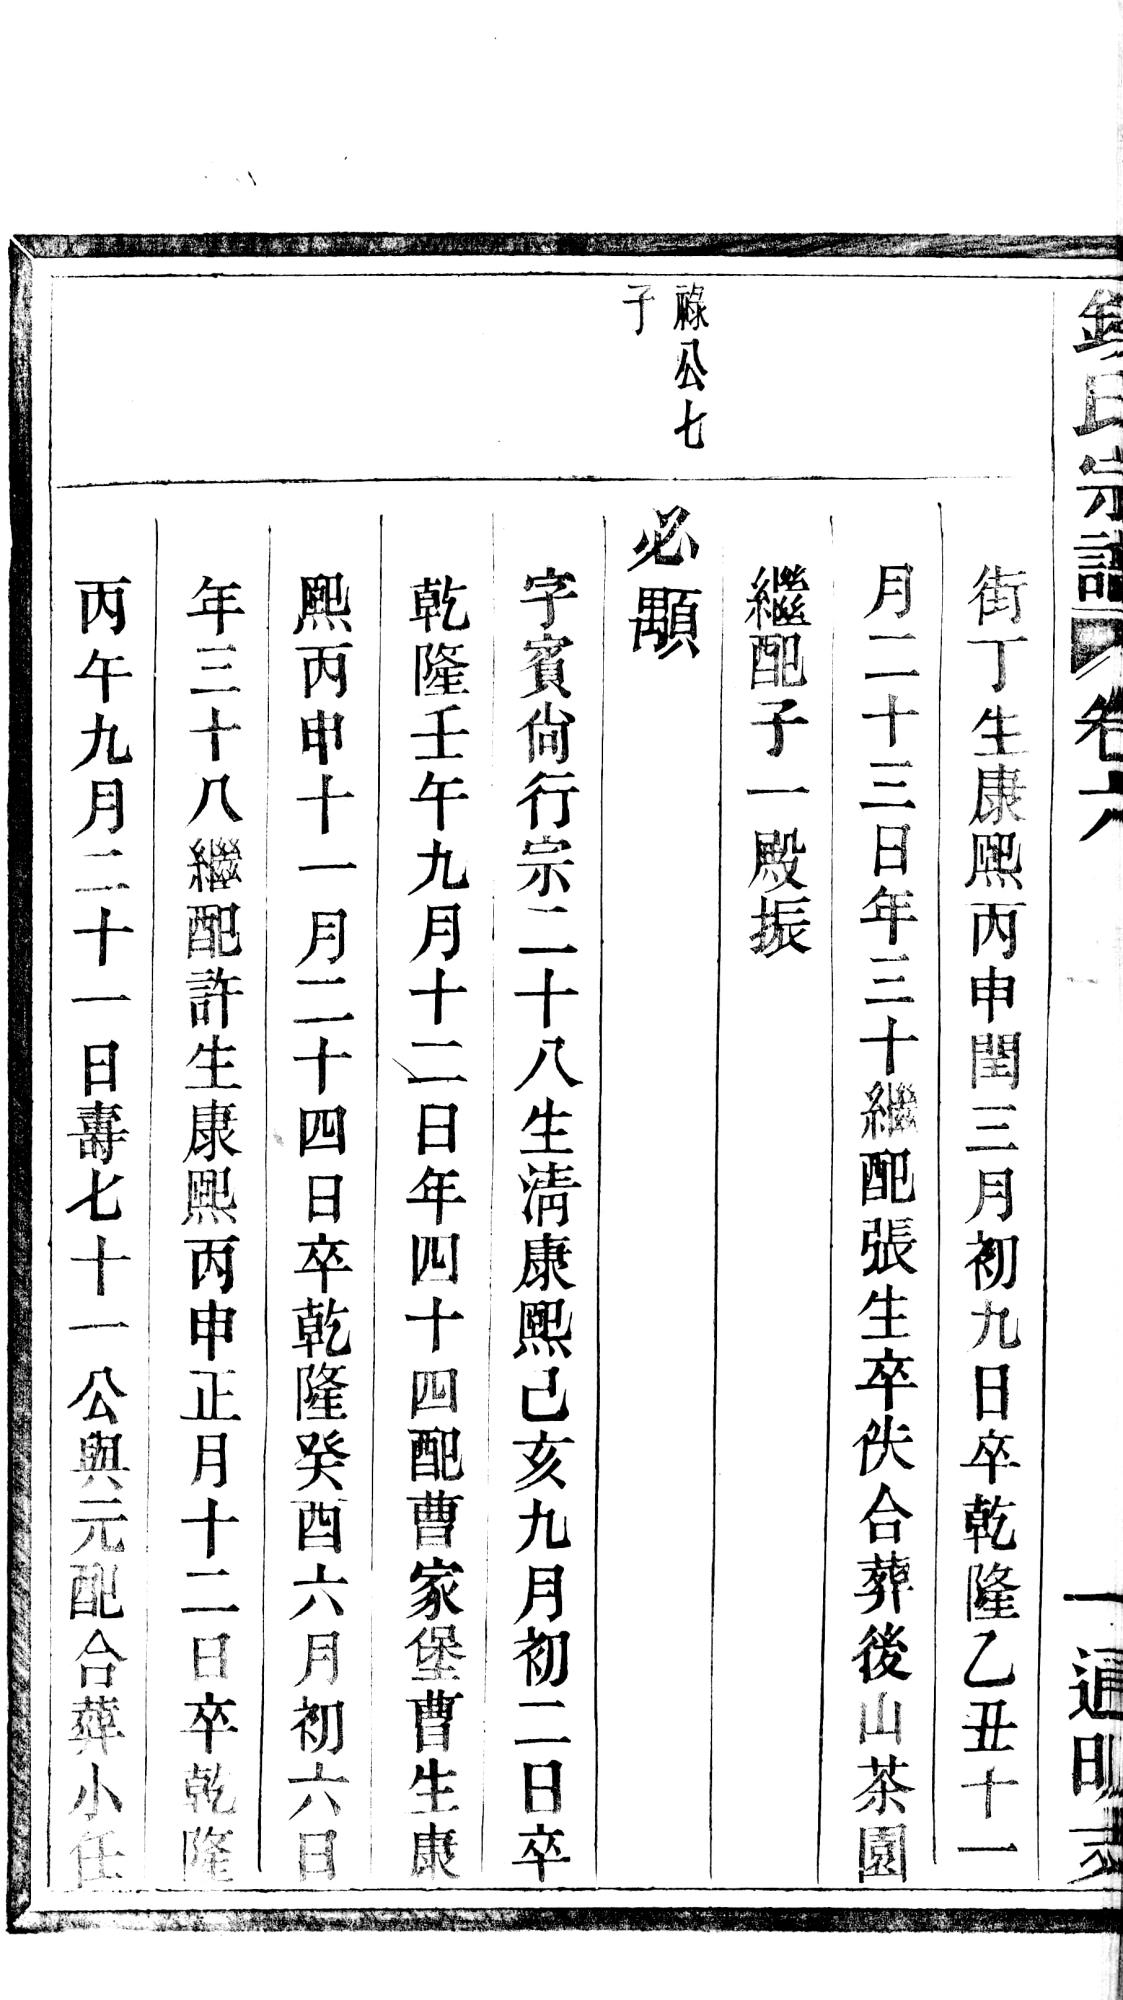 氏宗譜 卷六 一 通明
街丁生康熙丙申閏三月初九日卒乾隆乙丑十一
月二十三日年三十繼配張生卒佚合葬後山茶園
繼配子一殿振
祿公七
子
必顒
字賓尙行宗二十八生淸康熙己亥九月初二日卒
乾隆壬午九月十二日年四十四配曹家堡曹生康
熙丙申十一月二十四日卒乾隆癸酉六月初六日
年三十八繼配許生康熙丙申正月十二日卒乾隆
丙午九月二十一日壽七十一公與元配合葬小任